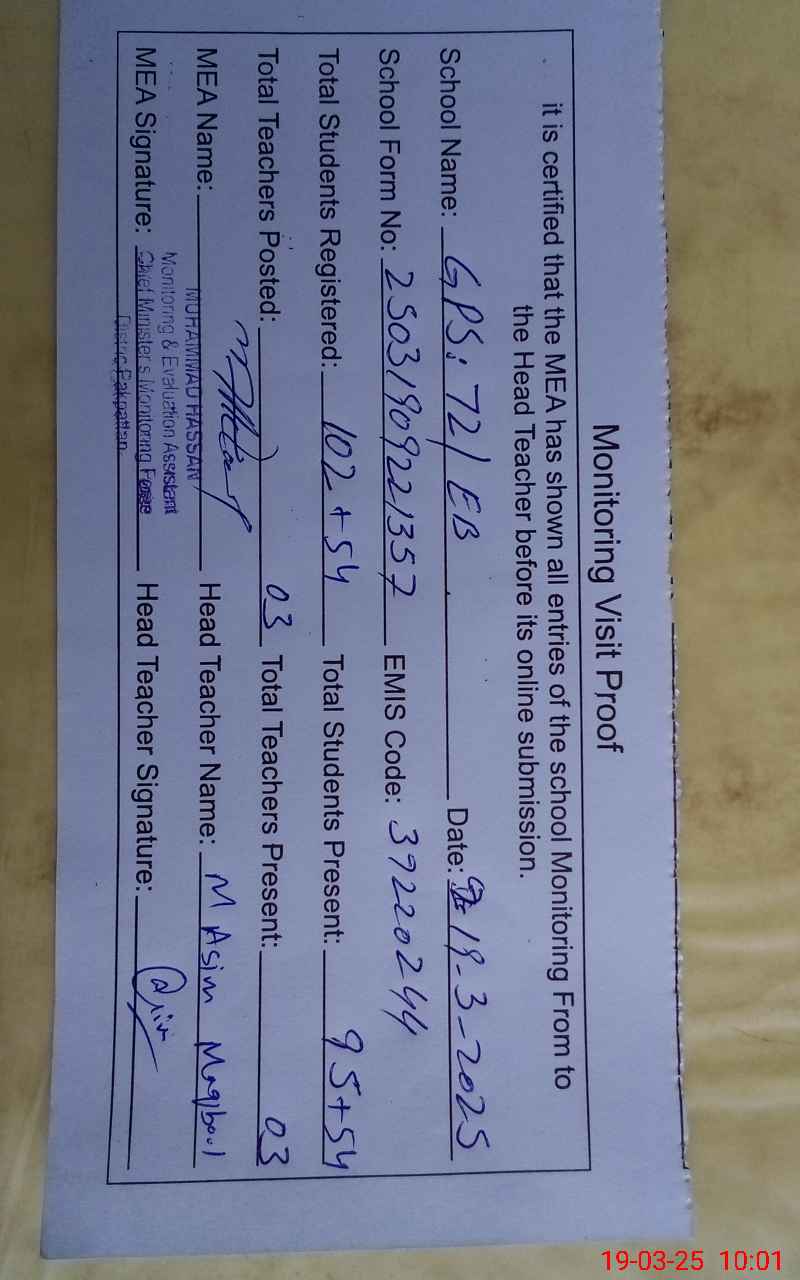 Monitoring Visit Proof
it is certified that the MEA has shown all entries of the school Monitoring From to
the Head Teacher before its online submission.
School Name: GPS: 72/EB Date: 19-3-2025
School Form No: 25031909221357 EMIS Code: 39220244
Total Students Registered: 102+54 Total Students Present: 95+54
Total Teachers Posted: 03 Total Teachers Present: 03
MEA Name: MUHAMMAD HASSAN Head Teacher Name: M Asim Maqbool
Monitoring & Evaluation Assistant
MEA Signature: Chief Minister's Monitoring Force Head Teacher Signature:
District Pakpattan
19-03-25 10:01